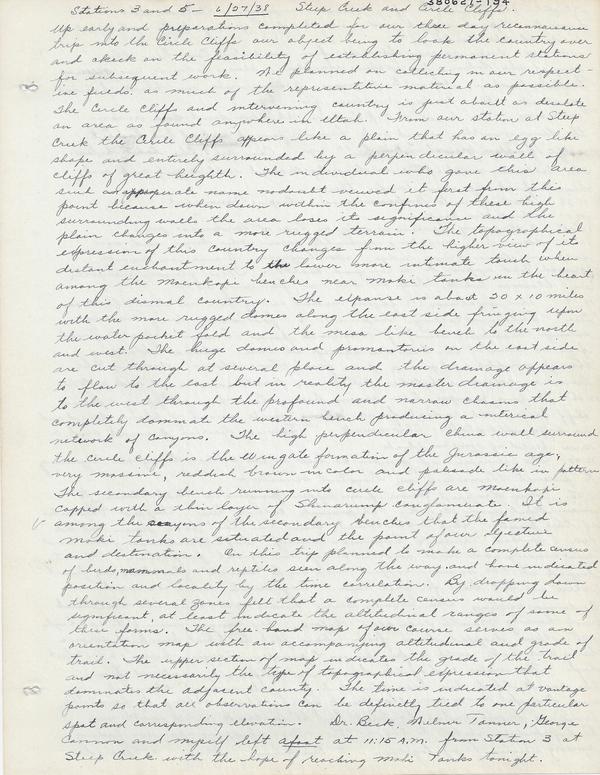 Stations 3 and 5 - 6/27/38 Steep Creek and Circle Cliffs.
380627-194
Up early and preparations completed for our three day reconnaissance
trip into the Circle Cliffs our object being to look the country over
and check on the feasibility of establishing permanent stations
for subsequent work. We planned on collecting in our respect-
ive fields as much of the representative material as possible.
The Circle Cliffs and intervening country is just about as desolate
an area as found anywhere in Utah. From our station at Steep
Creek the Circle Cliffs appears like a plain that has an egg like
shape and entirely surrounded by a perpendicular wall of
cliffs of great heighth. The individual who gave this area
such an appropriate name no doubt viewed it first from this
point because when down within the confines of these high
surrounding walls the area loses its significance and the
plain changes into a more rugged terrain. The topographical
expression of this country changes from the higher view of its
distant enchantment to the lower more intimate touch when
among the Moenkopi benches near Moki tanks in the heart
of this dismal country. The expanse is about 20 x 10 miles
with the more rugged domes along the east side fringing upon
the water pocket fold and the mesa like bench to the north
and west. The huge domes and promontories on the east side
are cut through at several place and the drainage appears
to flow to the east but in reality the master drainage is
to the west through the profound and narrow chasms that
completely dominate the western bench producing a
network of canyons. The high perpendicular China wall surround
the circle cliffs is the Wingate formation of the Jurassic age,
very massive, reddish brown in color and palisade like in pattern
The secondary bench running into circle cliffs are Moenkopi
capped with a thin layer of Shinarump conglomerate. It is
among the canyons of the secondary benches that the famed
Moki tanks are situated and the point of our objective
and destination. On this trip planned to make a complete census
of birds, mammals and reptiles seen along the way and have indicated
position and locality by the time correlation. By dropping down
through several zones felt that a complete census would be
significant, at least indicate the altitudinal ranges of some of
these forms. The free-hand map of our course serves as an
orientation map with an accompanying altitudinal and grade of
trail. The upper section of map indicates the grade of the trail
and not necessarily the type of topographical expression that
dominates the adjacent county. The time is indicated at vantage
points so that all observations can be definitely tied to one particular
spot and corresponding elevation. Dr. Beck, Wilmer Tanner, George
Cannon and myself left afoot at 11:15 A.M. from Station 3 at
Steep Creek with the hope of reaching Moki Tanks tonight.